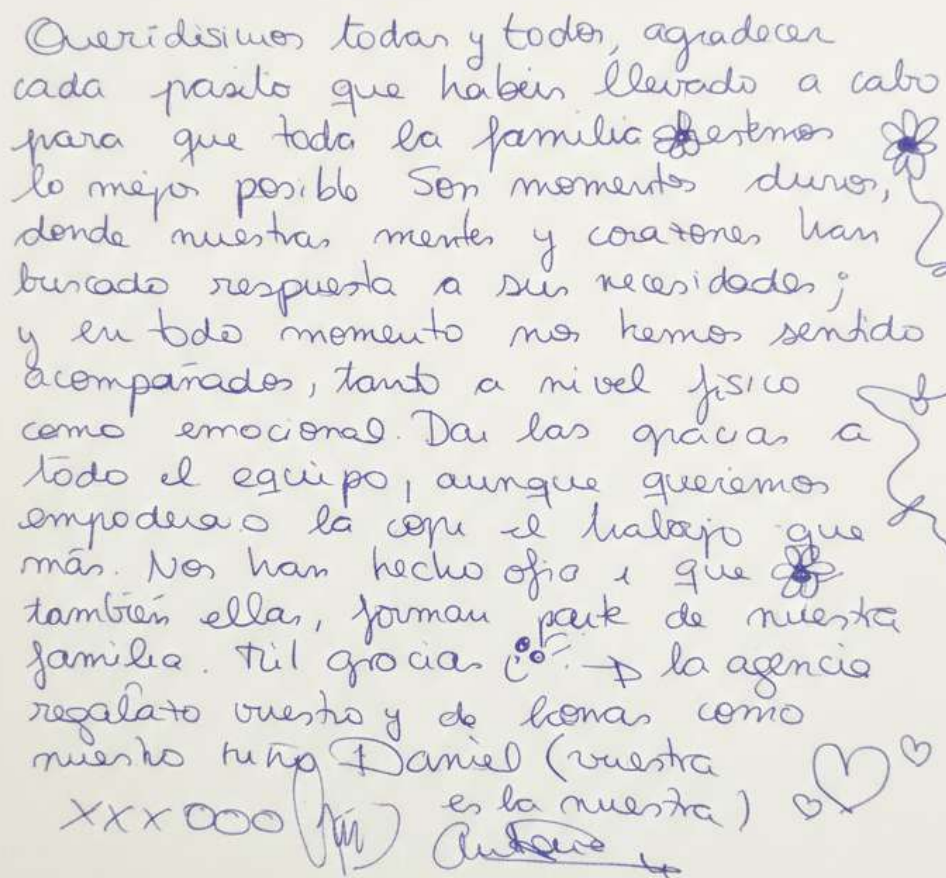 Queridísimos todas y todos, agradecer
cada pasito que habéis llevado a cabo
para que toda la familia estemos
lo mejor posible Son momentos duros,
donde nuestras mentes y corazones han
buscado respuesta a sus necesidades;
y en todo momento nos hemos sentido
acompañados, tanto a nivel físico
como emocional. Dar las gracias a
todo el equipo, aunque queremos
la el trabajo que
más. Nos han hecho que
también ellas, forman parte de nuestra
familia. Mil gracias la agencia
vuestro y de como
nuestro Daniel (vuestra
es la nuestra)
XXX OOO